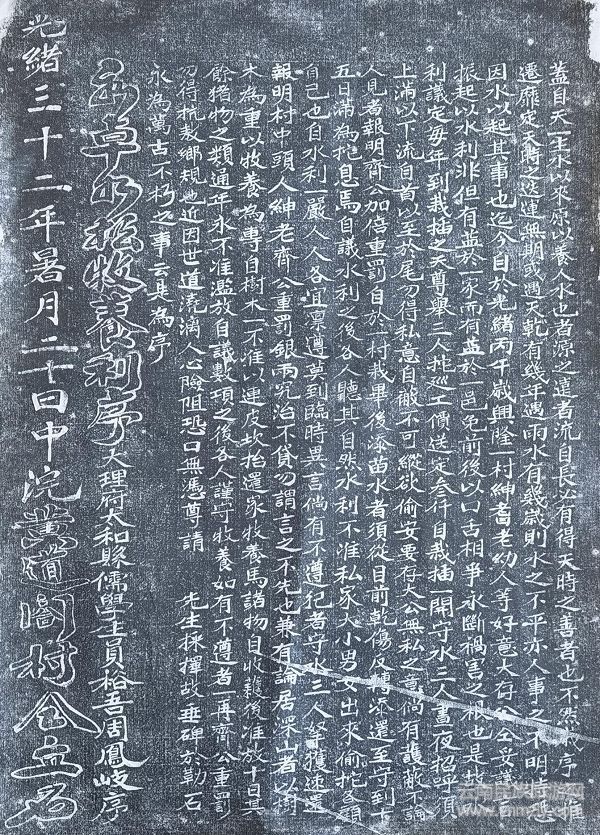 蓋自天一生水以來原以養人水也者源之遠者流自長必有得天時之善者也不然序
遷靡定天時之迭運無期或遇天乾有幾年遇雨水有幾歲則水之不平亦人事之不明
因水以起其事也迄今自於光緒丙午歲興隆一村紳耆老幼人等好意大存公仝妥議
振起以水利非但有益於一家而有益於一邑免前後以口舌相爭永斷禍害之根也是故
利議定每年到栽插之天尊舉三人扯巡工價送定叁仟自栽插一開守水三人晝夜招呼須
上滿以下流自首以至於尾勿得私意自敝不可縱欲偷安要存大公無私之意倘有護敝不
人見者報明齊公加倍重罰自於一村栽畢後添苗水者須從目前乾傷反轉流還至守到下
五日滿為挖息焉自議水利之後各人聽其自然水利不准私家大小男女出來偷挖各顧
自己也自水利一嚴人人各宜凛遵莫到臨時異言倘有不遵犯者守水三人拏獲速還
報明村中頭人紳老齊公重罰銀兩究治不貸勿謂言之不先也兼有論居深山者以樹
木為重以牧養為專自樹木一不准以連皮坎抬還家牧養馬諸物自收穫後准放十日其
餘猪物之類通年永不准濫放自議數項之後各人謹守牧養如有不遵者一再齊公重罰
勿得抗敖鄉規也近因世道澆漓人心險阻恐口無憑尊請　先生採擇故垂碑於勒石
永為萬古不朽之事云是為序
草水松牧養利序　大理府太和縣儒學生員裕吾周鳳岐序
光緒三十二年暑月二十日中浣黄道閤村仝立